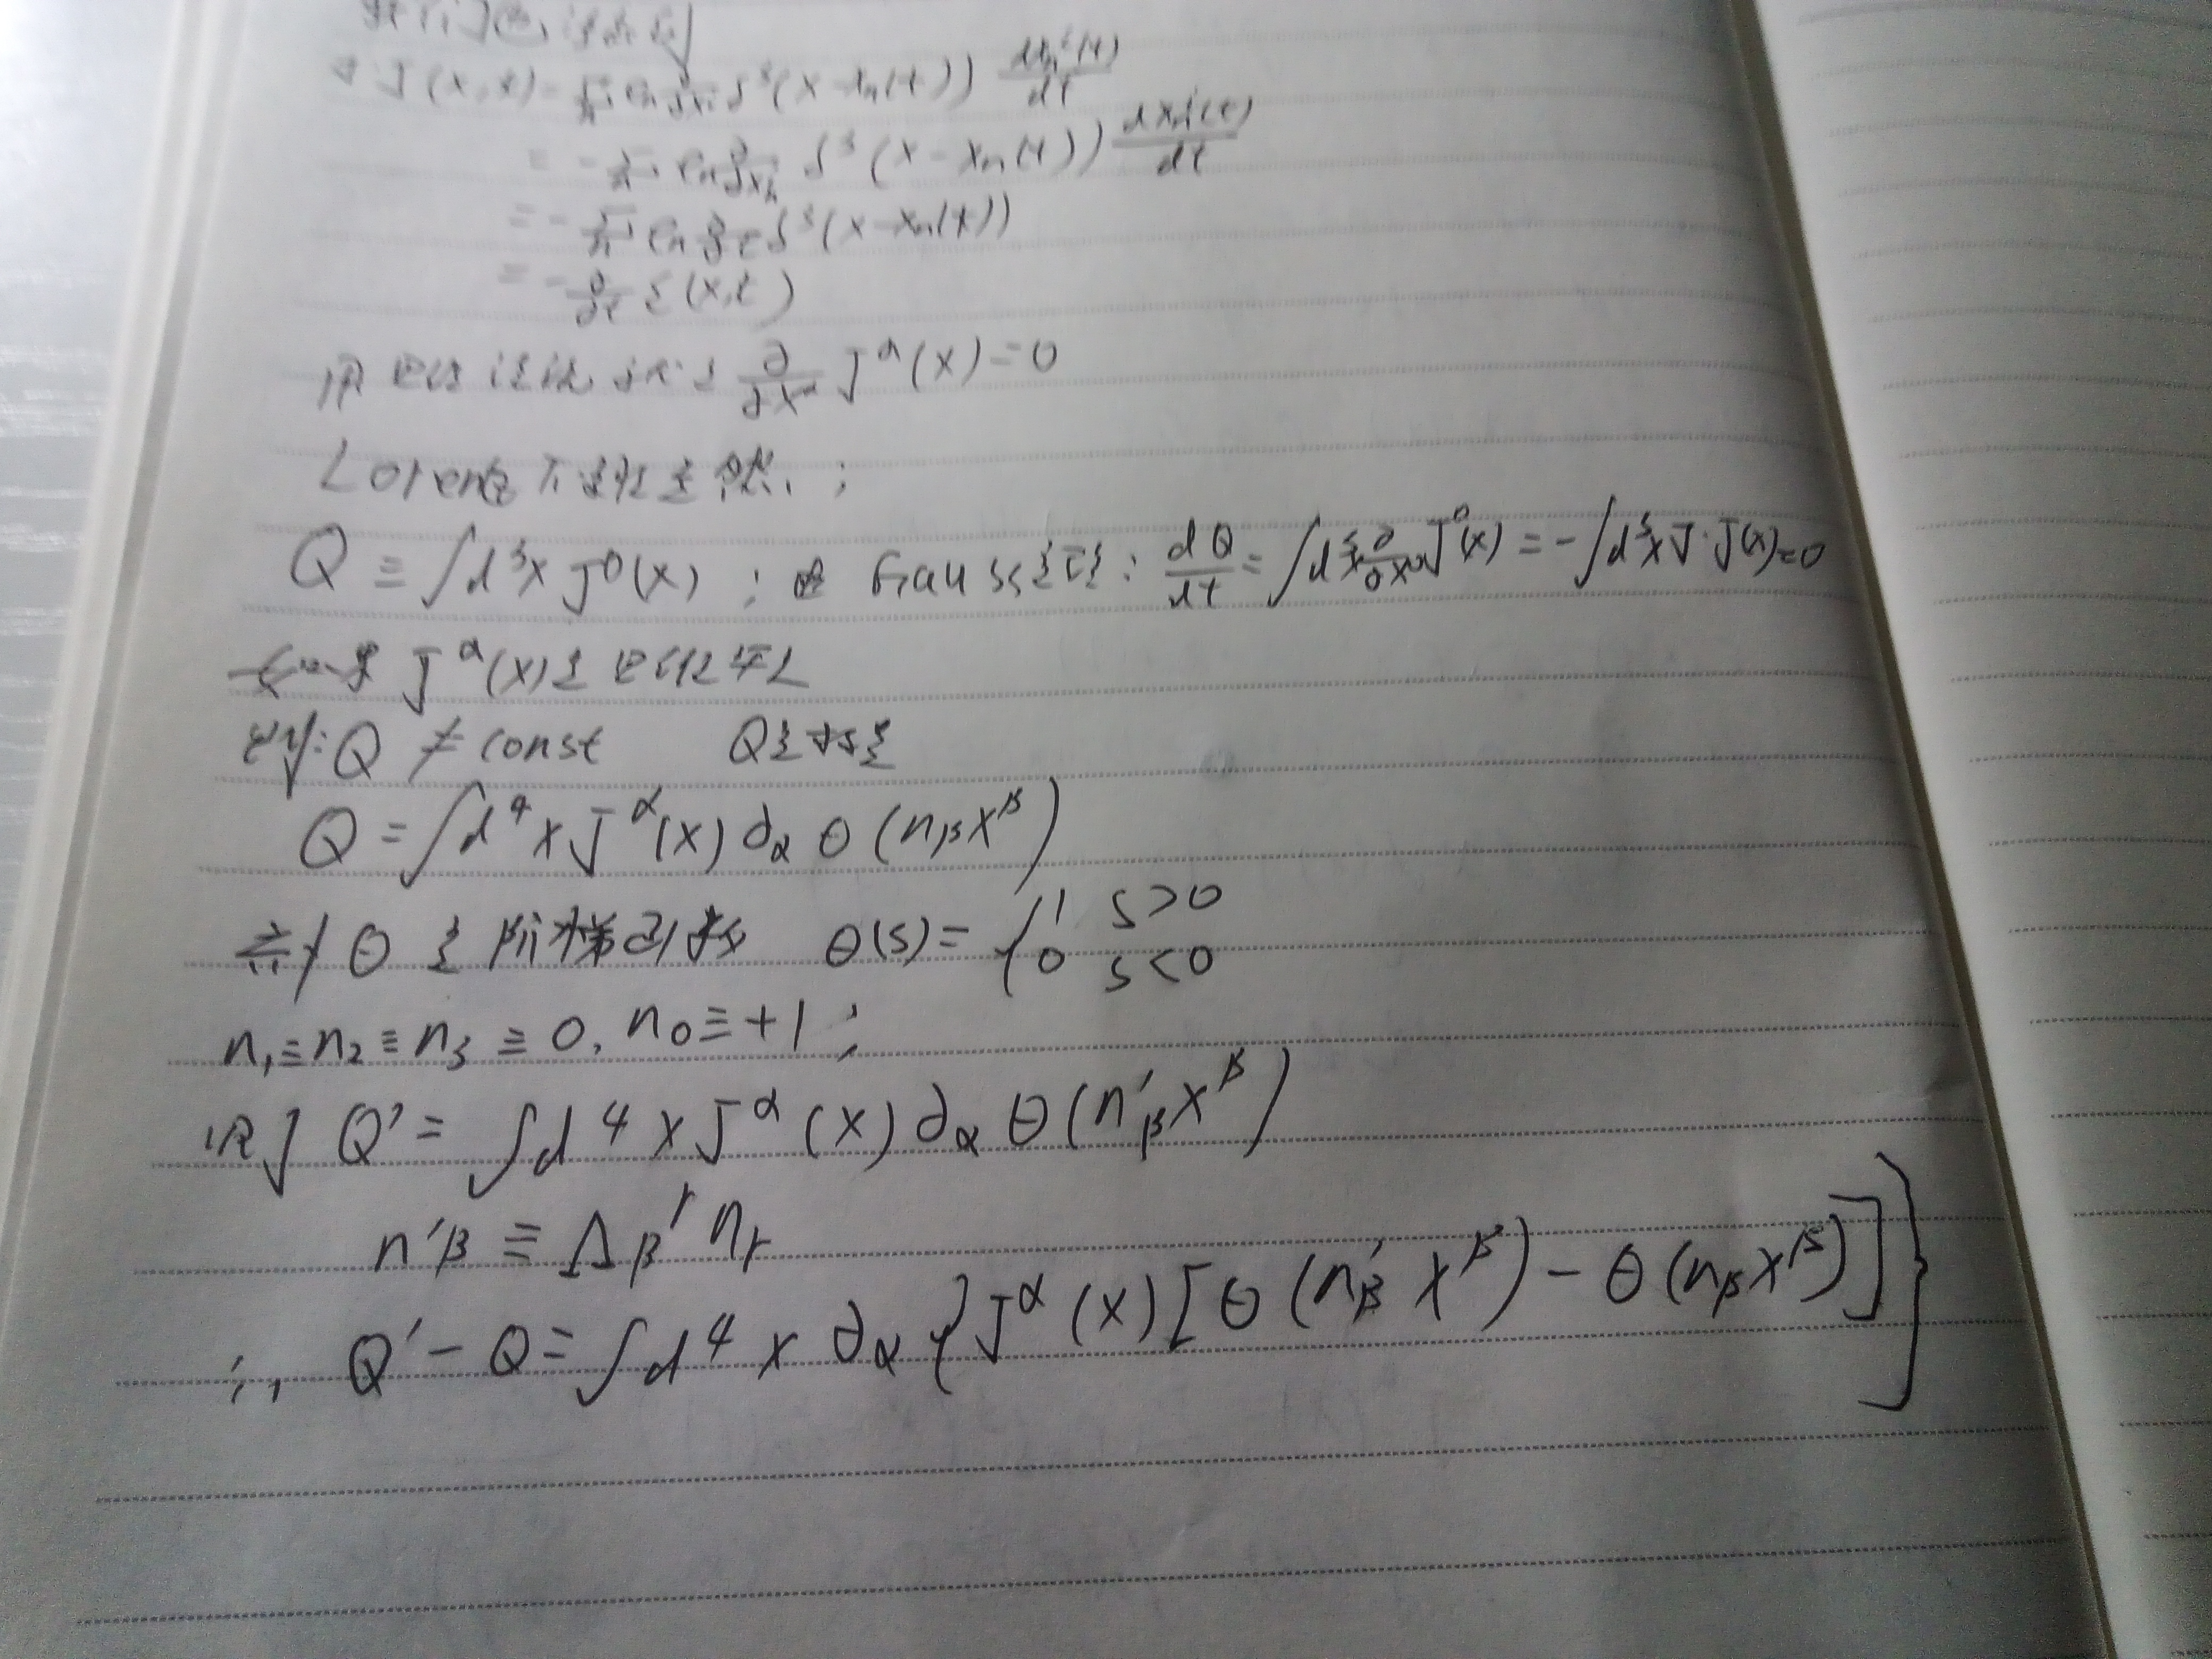 ∇·J(x,t) = Σₙ eₙ ∂/∂xⁱ δ³(x − xₙ(t)) dxₙⁱ(t)/dt
= −Σₙ eₙ ∂/∂xₙⁱ δ³(x − xₙ(t)) dxₙⁱ(t)/dt
= −Σₙ eₙ ∂/∂t δ³(x − xₙ(t))
= −∂/∂t ε(x,t)
∂/∂x^α J^α(x) = 0
Lorentz 不变性
Q ≡ ∫d³x J⁰(x) ; 由 Gauss定理: dQ/dt = ∫d³x ∂/∂x⁰ J⁰(x) = −∫d³x ∇·J(x) = 0
J^α(x)是
Q ≠ const Q是标量
Q = ∫d⁴x J^α(x) ∂_α θ(n_β x^β)
θ 是阶梯函数 θ(s) = { 1 s>0
0 s<0
n₁ ≡ n₂ ≡ n₃ ≡ 0, n₀ ≡ +1;
则 Q′ = ∫d⁴x J^α(x) ∂_α θ(n′_β x^β)
n′_β ≡ Λ_β^γ n_γ
∴ Q′ − Q = ∫d⁴x ∂_α {J^α(x)[θ(n′_β x^β) − θ(n_β x^β)]}